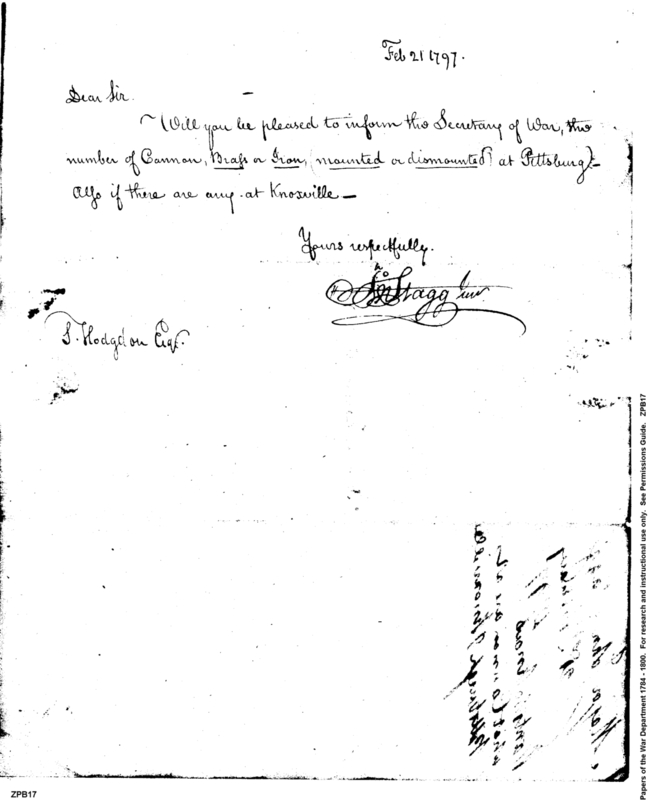 Feb 21 1797.
Dear Sir.
Will you be pleased to inform the Secretary of War, the
number of Cannon, Brass or Iron, (mounted or dismounted) at Pittsburg)—
Also if there are any at Knoxville —
Yours respectfully.
Jno Stagg Junr
S. Hodgdon Esqr.
Pittsburg & Knoxville
Papers of the War Department 1784 - 1800. For research and instructional use only. See Permissions Guide. ZPB17
ZPB17